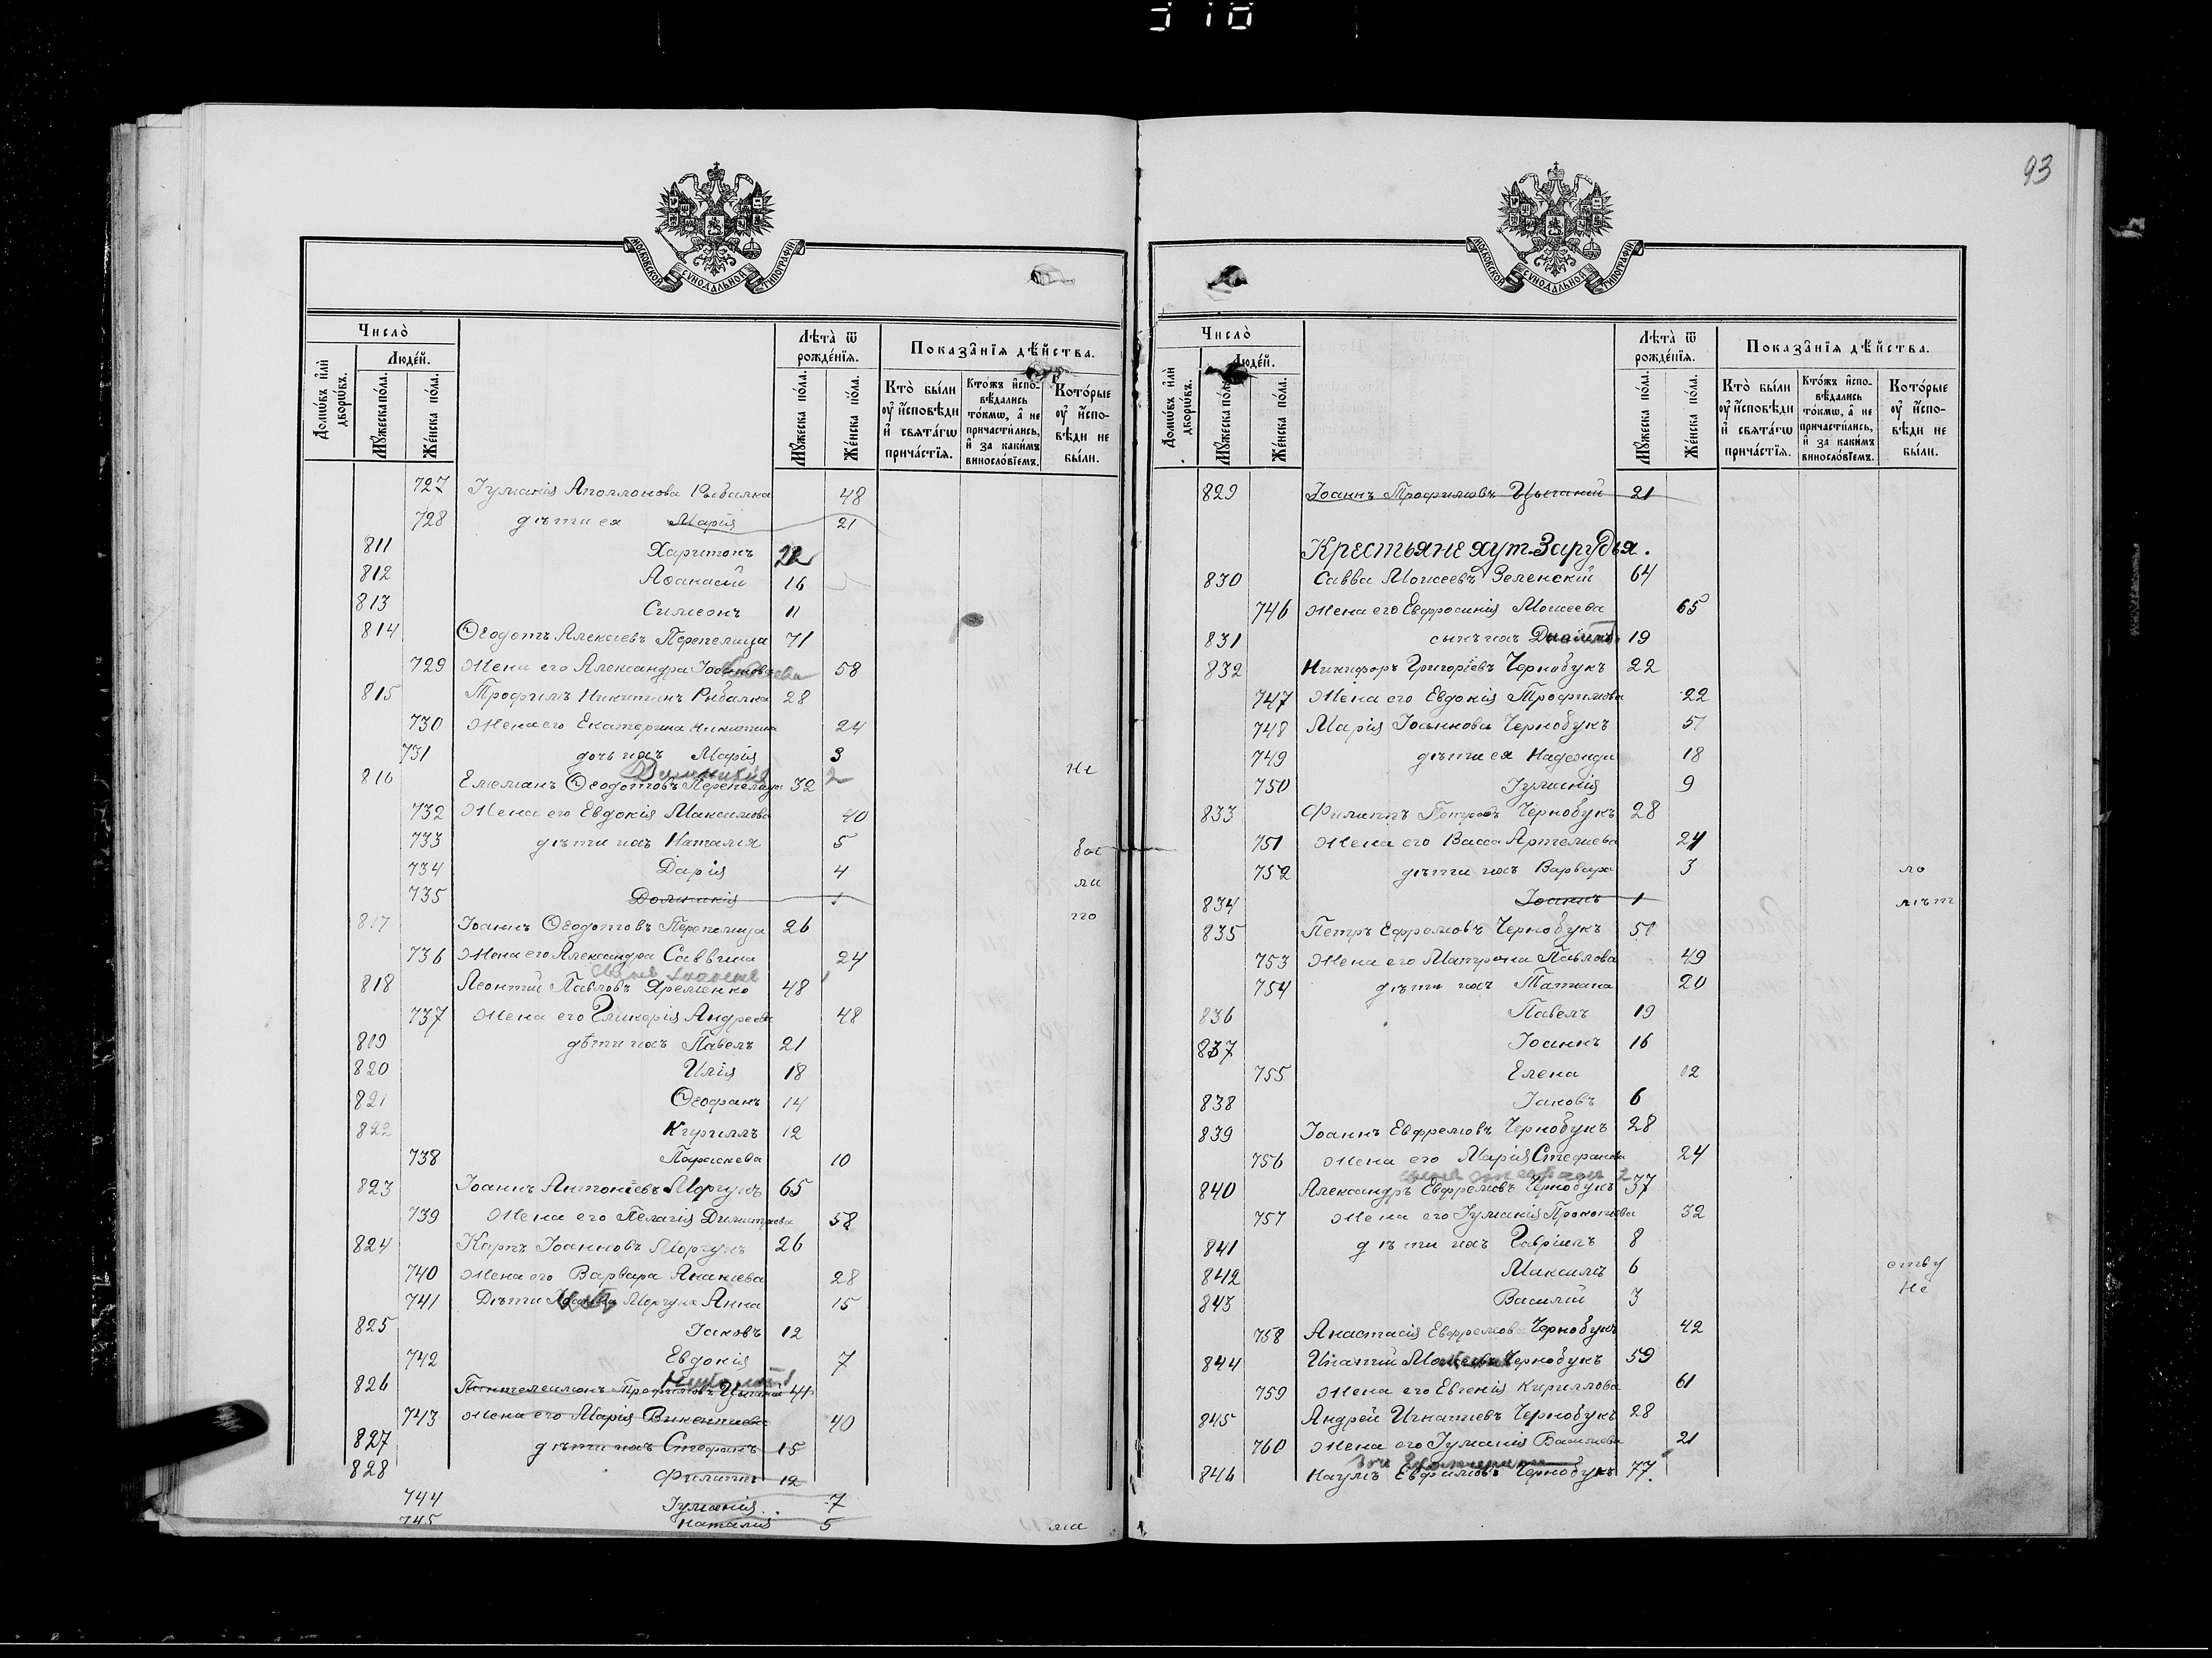 93
МОСКОВСКОЙ СѴНОДАЛЬНОЙ ТИПОГРАФІИ
Число̀
Людéй.
Домѡ́въ и҆лѝ дворѡ́въ.
Мꙋ́жеска по́ла.
Же́нска по́ла.
Лѣта̀ ѿ рожде́нїѧ.
Мꙋ́жеска по́ла.
Же́нска по́ла.
Показа̑нїѧ дѣ́йства.
Кто̀ бы́ли ᲂу҆ и҆́сповѣди и҆ свѧта́гѡ прича́стїѧ.
Кто́жъ и҆спо-вѣ́дались то́кмѡ, а҆ не причасти́лись, и҆ за каки́мъ виносло́вїемъ.
Кото́рые ᲂу҆ и҆́спо-вѣди не бы́ли.
727 Іуманія Аполлонова Рыбалка 48
728 дѣти ея Марія 21
811 Харитонъ 22
812 Аѳанасій 16
813 Симеонъ 11
814 Ѳеодотъ Алексіевъ Перепелица 71
729 Жена его Александра 58
815 Трофимъ Никитинъ Рыбалка 28
730 Жена его Екатерина Никитина 24
731 дочь ихъ Марія 3
816 Емеліанъ Ѳеодотовъ Перепелица 32 Не
732 Жена его Евдокія Максимова 40
733 дѣти ихъ Наталія 5 бы
734 Дарія 4 ли
735 Домникія 1 по
817 Іоаннъ Ѳеодотовъ Перепелица 26
736 Жена его Александра Саввина 24
818 Леонтій Павловъ Яременко 48
737 Жена его Гликерія Андреева 48
819 дѣти ихъ Павелъ 21
820 Илія 18
821 Ѳеофанъ 14
822 Кириллъ 12
738 Параскева 10
823 Іоаннъ Антоніевъ Моргунъ 65
739 Жена его Пелагія Димитріева 58
824 Карпъ Іоанновъ Моргунъ 26
740 Жена его Варвара Ананіева 28
741 Дѣти Моргуна Анна 15
825 Іаковъ 12
742 Евдокія 7
826 Пантелеимонъ Трофимовъ Цыганій 41
743 Жена его Марія Викентіева 40
827 дѣти ихъ Стефанъ 15
828 Филиппъ 12
744 Іуманія 7
745 Наталія 5 ли
МОСКОВСКОЙ СѴНОДАЛЬНОЙ ТИПОГРАФІИ
Число̀
Людéй.
Домѡ́въ и҆лѝ дворѡ́въ.
Мꙋ́жеска по́ла.
Же́нска по́ла.
Лѣта̀ ѿ рожде́нїѧ.
Мꙋ́жеска по́ла.
Же́нска по́ла.
Показа̑нїѧ дѣ́йства.
Кто̀ бы́ли ᲂу҆ и҆́сповѣди и҆ свѧта́гѡ прича́стїѧ.
Кто́жъ и҆спо-вѣ́дались то́кмѡ, а҆ не причасти́лись, и҆ за каки́мъ виносло́вїемъ.
Кото́рые ᲂу҆ и҆́спо-вѣди не бы́ли.
829 Іоаннъ Трофимовъ Цыганій 21
Крестьяне хут. Зарудья.
830 Савва Моисеевъ Зеленскій 64
746 Жена его Евфросинія Моисеева 65
831 сынъ ихъ 19
832 Никифоръ Григоріевъ Чернобукъ 22
747 Жена его Евдокія Трофимова 22
748 Марія Іоаннова Чернобукъ 51
749 дѣти ея Надежда 18
750 Іуманія 9
833 Филиппъ Петровъ Чернобукъ 28
751 Жена его Васса Артемиева 24
752 дѣти ихъ Варвара 3 ло
834 Іоаннъ 1 лѣт
835 Петръ Ефремовъ Чернобукъ 51
753 Жена его Матрона Павлова 49
754 дѣти ихъ Татіана 20
836 Павелъ 19
837 Іоаннъ 16
755 Елена 12
838 Іаковъ 6
839 Іоаннъ Евфремовъ Чернобукъ 28
756 Жена его Марія Стефанова 24
840 Александръ Евфремовъ Чернобукъ 37
757 Жена его Іуманія Прокопіева 32
841 дѣти ихъ Гавріилъ 8
842 Максимъ 6 ству
843 Василій 3 Не
758 Анастасія Евфремова Чернобукъ 42
844 Игнатій Чернобукъ 59
759 Жена его Евгенія Кириллова 61
845 Андрей Игнатіевъ Чернобукъ 28
760 Жена его Іуманія Василіева 21
846 Наумъ Евфимовъ Чернобукъ 77.